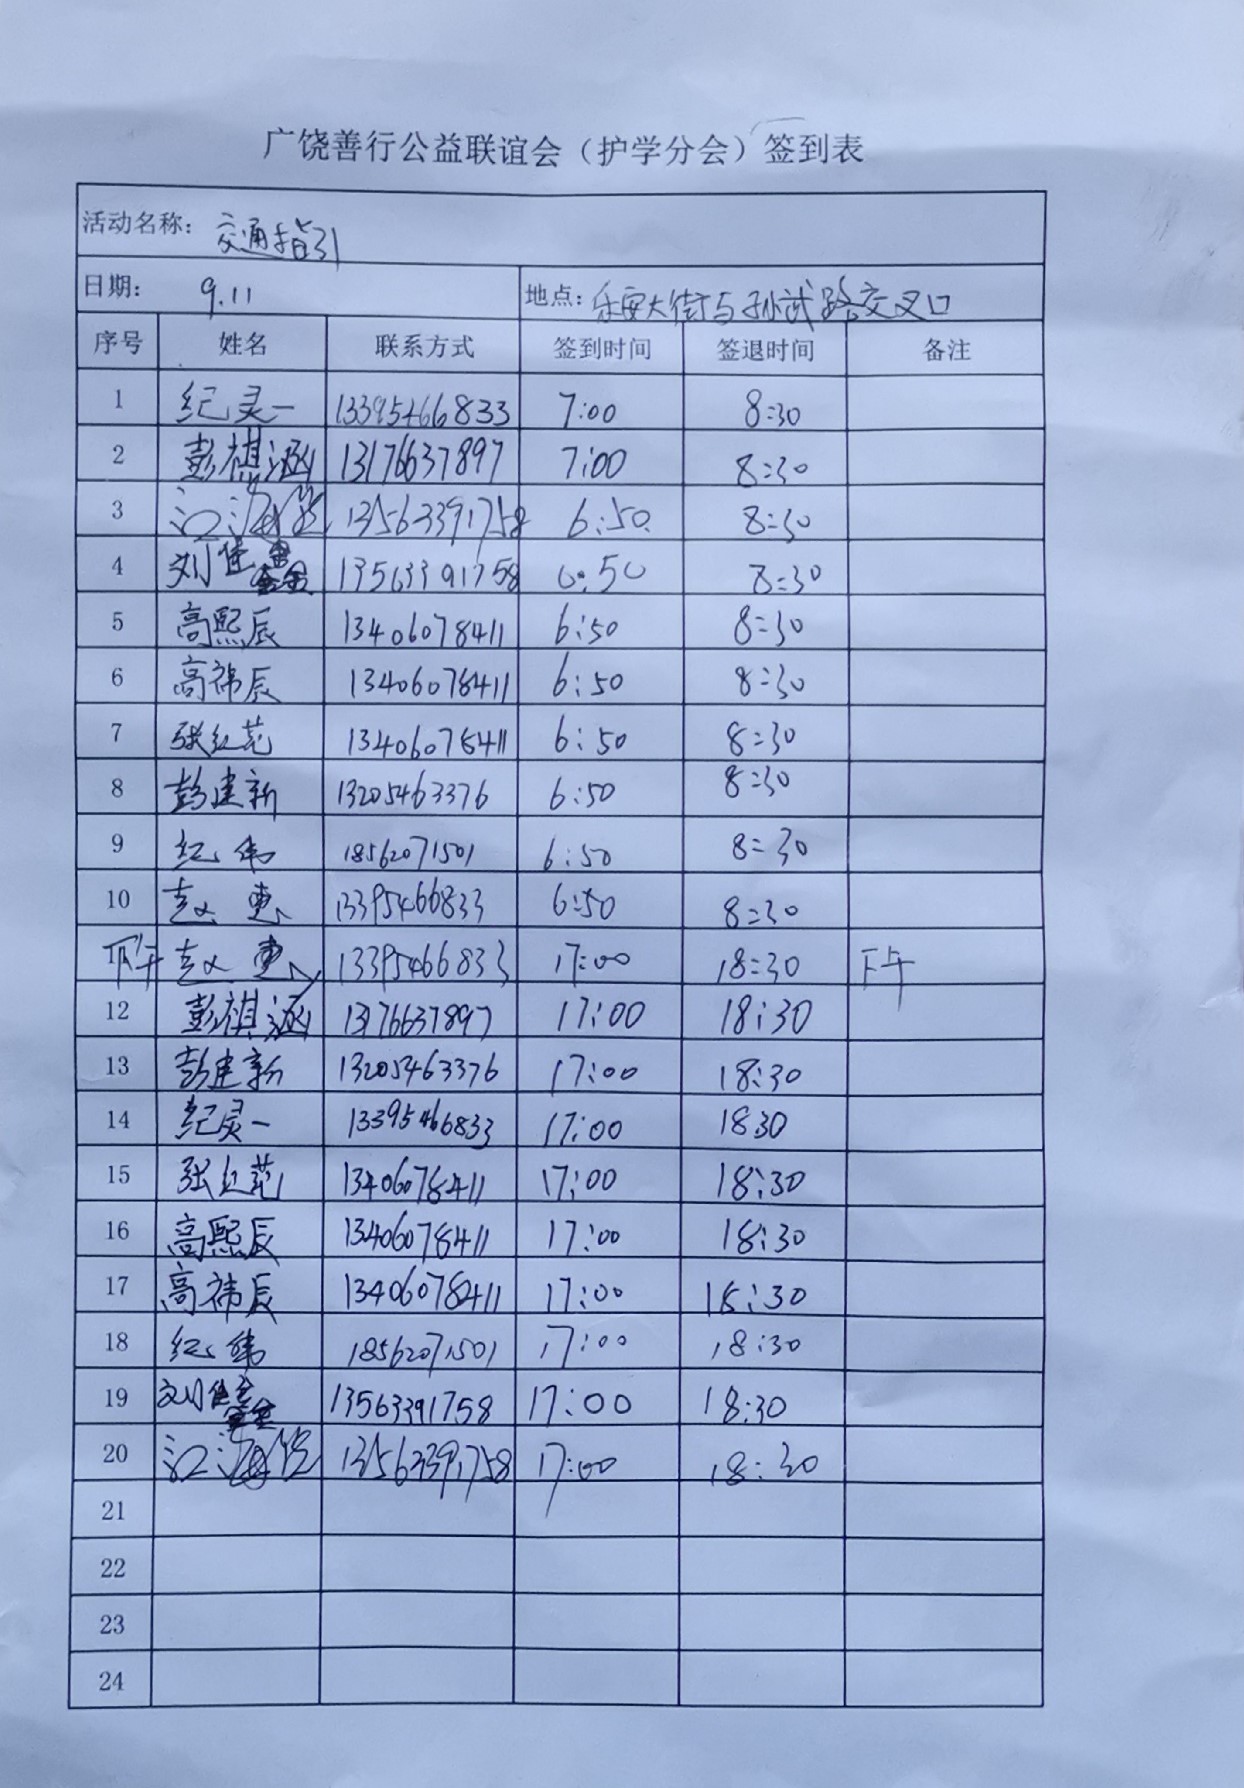 广饶善行公益联谊会（护学分会）签到表
活动名称： 交通指引
日期： 9.11 地点：乐安大街与孙武路交叉口
序号 姓名 联系方式 签到时间 签退时间 备注
1 纪灵一 13395466833 7:00 8:30
2 彭祺涵 13176637897 7:00 8:30
3 江海 13563391758 6:50 8:30
4 刘佳鑫 13563391758 6:50 8:30
5 高熙辰 13406078411 6:50 8:30
6 高祎辰 13406078411 6:50 8:30
7 张红范 13406078411 6:50 8:30
8 彭建新 13205463376 6:50 8:30
9 纪伟 18562071501 6:50 8:30
10 赵惠 13395466833 6:50 8:30
下午 赵惠 13395466833 17:00 18:30 下午
12 彭祺涵 13176637897 17:00 18:30
13 彭建新 13205463376 17:00 18:30
14 纪灵一 13395466833 17:00 18:30
15 张红范 13406078411 17:00 18:30
16 高熙辰 13406078411 17:00 18:30
17 高祎辰 13406078411 17:00 18:30
18 纪伟 18562071501 17:00 18:30
19 刘佳鑫 13563391758 17:00 18:30
20 江海 13563391758 17:00 18:30
21
22
23
24